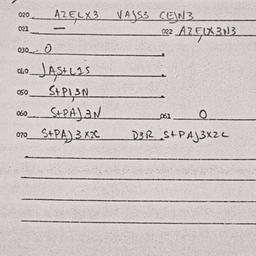 020 AZELX3 VAJS3 CEJN3
021 — 022 AZELX3N3
030 0
040 JAS+L1S
050 S+PJ3N
060 S+PAJ3N 061 0
070 S+PAJ3X2C D3R S+PAJ3X2C